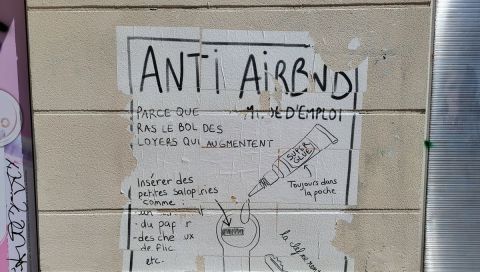 ANTI AIRBNB
MODE D'EMPLOI
PARCE QUE
RAS LE BOL DES
LOYERS QUI AUGMENTENT
SUPER
GLUE
Toujours dans
la poche
Insérer des
petites saloperies
comme :
- du papier
- des cheveux
de flic
etc.
la clef ne